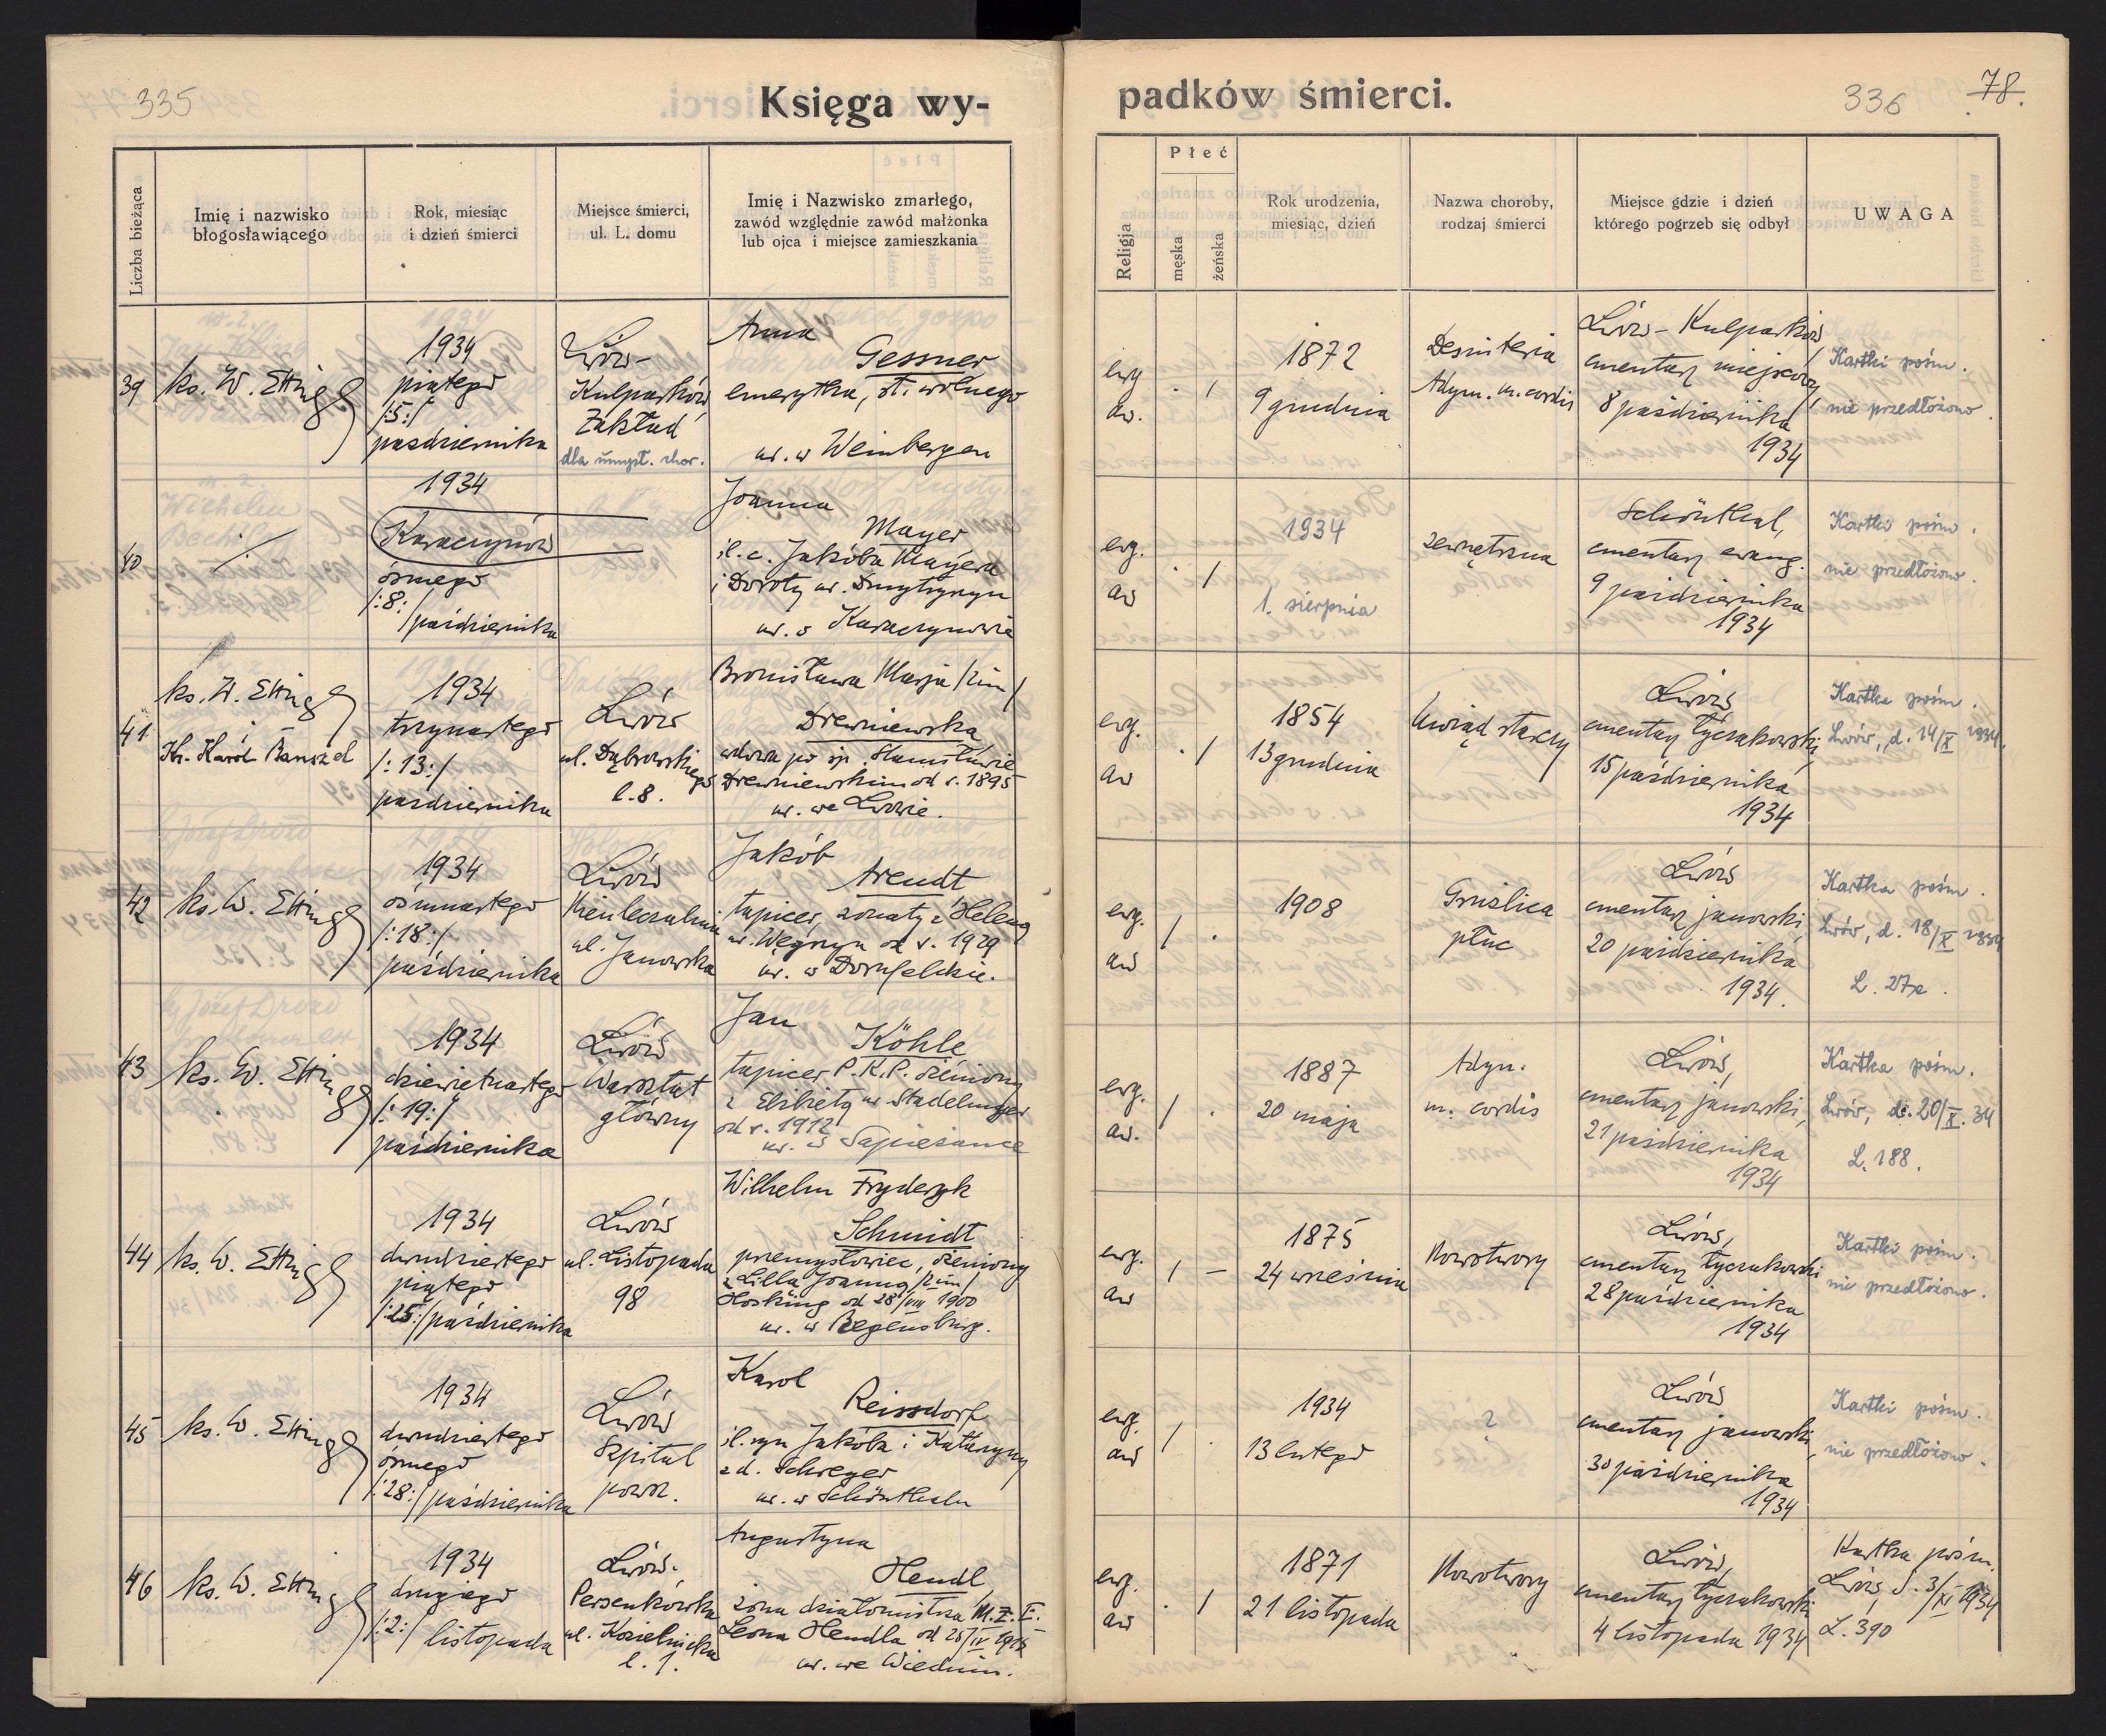 335
Księga wy-
Liczba bieżąca
Imię i nazwisko
błogosławiącego
Rok, miesiąc
i dzień śmierci
Miejsce śmierci,
ul. L. domu
Imię i Nazwisko zmarłego,
zawód względnie zawód małżonka
lub ojca i miejsce zamieszkania
39
ks. W. Etting
1934
piątego
/:5:/
października
Lwów-
Kulparków
Zakład
dla umysł. chor.
Anna
Gessner
emerytka, st. wolnego
ur. w Weinbergen
40
1934
Karaczynów
ósmego
/:8:/
października
Joanna
Mayer
śl. c. Jakóba Mayera
i Doroty ur. Dmytryszyn
ur. w Karaczynowie
41
ks. W. Etting
Ks. Karol
1934
trzynastego
/:13:/
października
Lwów
ul. Dąbrowskiego
l. 8.
Bronisława Marja /im/
Drewniewska
wdowa po śp. Stanisławie
Drewniewskim od r. 1895
ur. we Lwowie.
42
ks. W. Etting
1934
ośmnastego
/:18:/
października
Lwów
ul. Janowska
Jakób
Arendt
tapicer, żonaty z Heleną
ur. Węgrzyn od r. 1929
ur. w Dornfeldzie.
43
ks. W. Etting
1934
dziewiętnastego
/:19:/
października
Lwów
Warsztat
główny
Jan
Köhle
tapicer P.K.P. żeniony
z Elżbietą ur. Stadelmayer
od r. 1912
ur. w Sapieżance
44
ks. W. Etting
1934
dwudziestego
piątego
/:25:/ października
Lwów
ul. Listopada
98
Wilhelm Fryderyk
Schmidt
przemysłowiec, żeniony
z Lilla Joanną /im/
Hosking od 28/VIII 1900
ur. w Regensburg.
45
ks. W. Etting
1934
dwudziestego
ósmego
/:28:/ października
Lwów
Szpital
powsz.
Karol
Reissdorf
śl. syn Jakóba i Katarzyny
z d. Schreyer
ur. w Schönthalu
46
ks. W. Etting
1934
drugiego
/:2:/ listopada
Lwów.
Persenkówka
ul. Kozielnicka
l. 1.
Augustyna
Hendl,
żona działomistrza M.Z.E.
Leona Hendla od
ur. we Wiedniu.
padków śmierci.
336
78.
Religja
Płeć
męska
żeńska
Rok urodzenia,
miesiąc, dzień
Nazwa choroby,
rodzaj śmierci
Miejsce gdzie i dzień
którego pogrzeb się odbył
UWAGA
ewg
aw.
1872
9 grudnia
Desinteria
Adyn. m. cordis
Lwów - Kulparków
cmentarz miejscowy
8 października
1934
Kartki pośm.
nie przedłożono.
ewg.
aw
1934
1. sierpnia
zewnętrzna
Schönthal,
cmentarz ewang.
9 października
1934
Kartki pośm.
nie przedłożono.
ewg.
aw
1854
13 grudnia
Uwiąd starczy
Lwów
cmentarz łyczakowski,
15 października
1934
Kartka pośm.
Lwów, d. 14/X 1934.
ewg.
aw
1908
Gruźlica
płuc
Lwów
cmentarz janowski,
20 października
1934.
Kartka pośm.
Lwów, d. 18/X 1934
ewg.
aw.
1887
20 maja
Adyn.
m. cordis
Lwów,
cmentarz janowski,
21 października
1934
Kartka pośm.
Lwów, d. 20/X. 34
L. 188.
ewg.
aw
1875
24 września
Nowotwory
Lwów,
cmentarz łyczakowski
28 października
1934
Kartki pośm.
nie przedłożono.
ewg.
aw
1934
13 lutego
?
Lwów
cmentarz janowski,
30 października
1934
Kartki pośm.
nie przedłożono.
ewg.
aw
1871
21 listopada
Nowotwory
Lwów,
cmentarz łyczakowski
4 listopada 1934
Kartka pośm.
Lwów, d. 3/XI 1934
L. 390